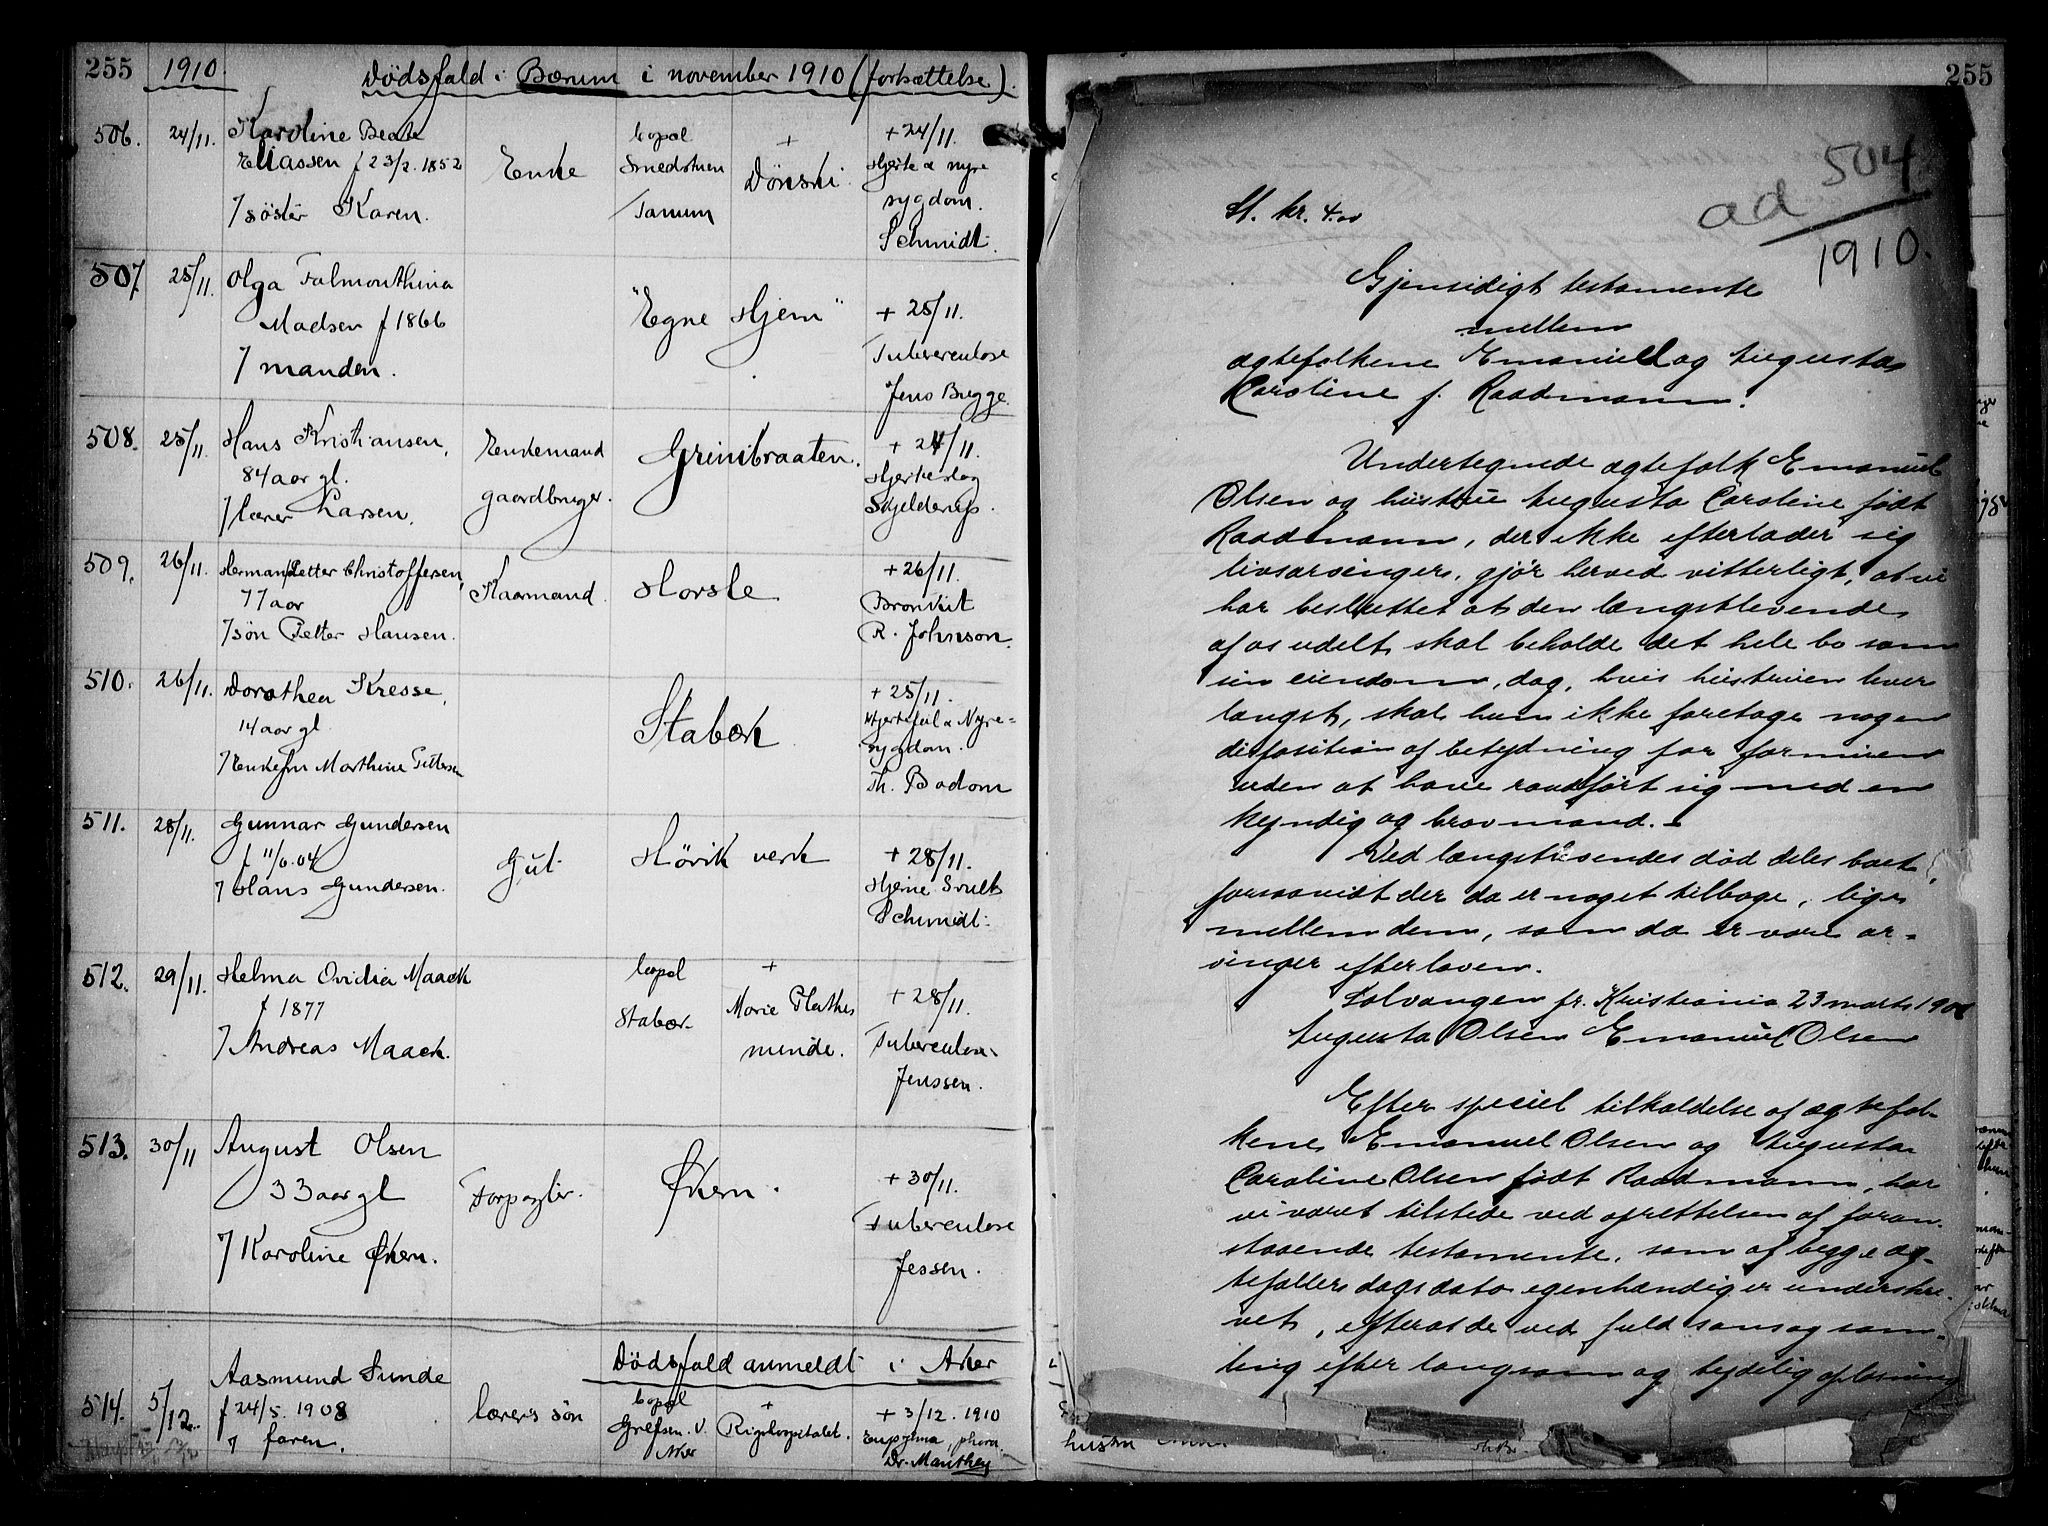 255 1910. Dödsfald i Bærum i november 1910 (fortsættelse).
506. 24/11. Karoline Beate
Eliassen f 23/2. 1852
/ söster Karen.
Enke
bopæl
Smedstuen
Tanum
+
Dönski
+ 24/11.
Hjerte & nyre
sygdom.
Schmidt.
507. 25/11. Olga Falmouthina
Madsen f 1866
/ manden.
"Egne Hjem"
+ 25/11.
Tuberculose
Jens Bugge
508. 25/11. Hans Kristiansen,
84 aar gl.
/ lærer Larsen.
Enkemand
gaardbruger.
Grinibraaten.
+ 24/11.
Hjerteslag
Skjelderup.
509. 26/11. Herman Petter Christoffersen,
77 aar
/ sön Petter Hansen.
Kaarmand
Horsle
+ 26/11.
Bronkit
R. Johnson.
510. 26/11. Dorothea Kresse,
14 aar gl
/ Enkefru Marthine Pettersen
Stabæk
+ 25/11.
Hjertefeil & Nyre=
sygdom.
Th. Bodom
511. 28/11. Gunnar Gundersen
f 11/6.04
/ Hans Gundersen.
Gut
Hövik verk
+ 28/11.
Hjerne Svulst
Schmidt.
512. 29/11. Helma Ovidia Maack
f 1877
/ Andreas Maack.
bopæl
Stabæk
+
Marie Plathes
minde.
+ 28/11.
Tuberculose
Jenssen.
513. 30/11 August Olsen
33 aar gl
/ Karoline Økern.
Forpagter.
Økern.
+ 30/11.
Tuberculose
Jessen.
Dödsfald anmeldt i Aker
514. 5/12. Aasmund Sunde
f 24/5. 1908
/ faren.
lærers sön
bopæl
Grefsen. V.
Aker
+
Rigshospitalet.
+ 3/12. 1910
Empyema,
Dr. Manthey
255
ad 504/1910.
St. kr. 4.00
Gjensidigt testamente
mellem
ægtefolkene Emanuel og Augusta
Caroline f. Raadmann.
Undertegnede ægtefolk Emanuel
Olsen og hustru Augusta Caroline født
Raadmann, der ikke efterlader sig
livsarvinger, gjør herved vitterligt, at vi
har besluttet at den længstlevende
af os udelt skal beholde det hele bo som
sin eiendom, dog, hvis hustruen lever
længst, skal hun ikke foretage nogen
disposition af betydning for formuen
uden at have raadført sig med en
kyndig og brav mand.
Ved længstlevendes død deles boet,
forsaavidt der da er noget tilbage, lige
mellem dem, som da er vore ar-
vinger efter loven.
Solvangen pr. Kristiania 23 marts 190
Augusta Olsen Emanuel Olsen
Efter speciel tilkaldelse af ægtefol-
kene Emanuel Olsen og Augusta
Caroline Olsen født Raadmann, har
vi været tilstede ved oprettelsen af foran-
staaende testamente, som af begge æg-
tefæller dags dato egenhændig er underskre-
vet, efterat de ved fuld sans og sam-
ling efter langsom og tydelig oplæsning
hustru